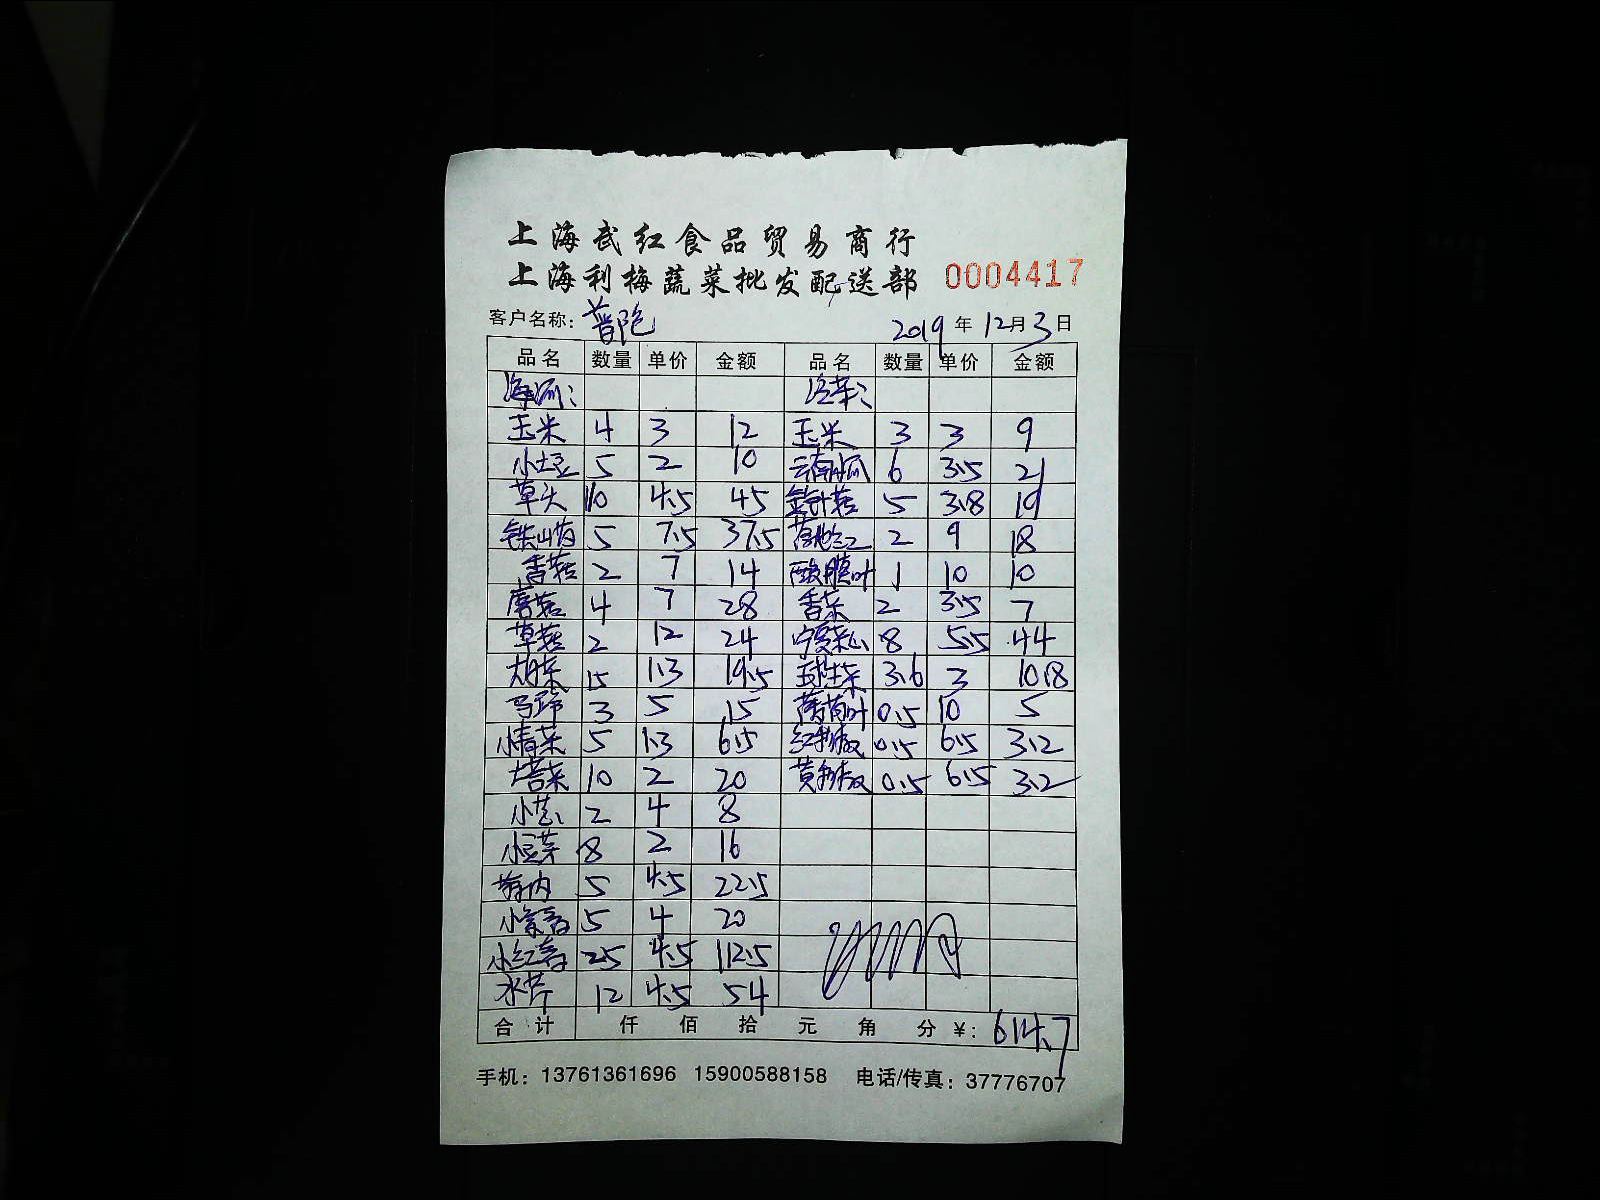 上海武红食品贸易商行
上海利梅蔬菜批发配送部 0004417
客户名称: 普陀 2019 年 12 月 3 日
品名 数量 单价 金额 品名 数量 单价 金额
玉米 4 3 12 玉米 3 3 9
小土豆 5 2 10 云南小瓜 6 3.5 21
草头 10 4.5 45 金针菇 5 3.8 19
铁山药 5 7.5 37.5 2 9 18
香菇 2 7 14 酸膜叶 1 10 10
磨菇 4 7 28 香菜 2 3.5 7
草菇 2 12 24 宁夏菜心 8 5.5 44
15 1.3 19.5 球生菜 3.6 3 10.8
马蹄 3 5 15 薄荷叶 0.5 10 5
小青菜 5 1.3 6.5 红物椒 0.5 6.5 3.2
塔菜 10 2 20 黄物椒 0.5 6.5 3.2
小芋 2 4 8
小豆芽 8 2 16
5 4.5 22.5
5 4 20
25 4.5 112.5
水芹 12 4.5 54
合计 仟 佰 拾 元 角 分 ¥: 614.7
手机: 13761361696 15900588158 电话/传真: 37776707